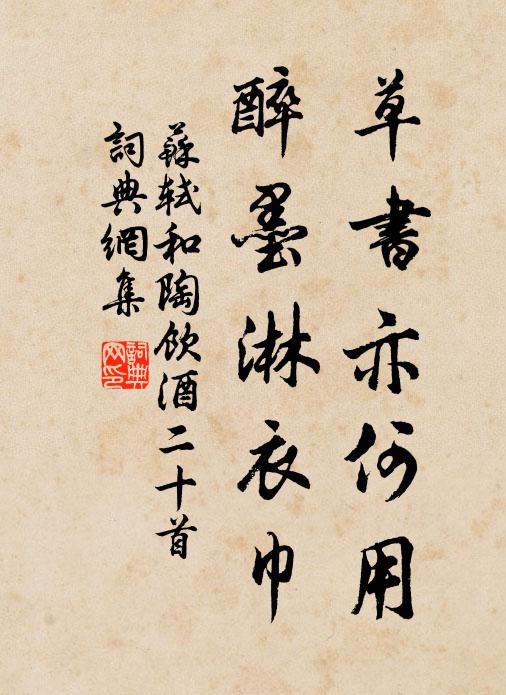 草書亦何用
醉墨淋衣巾
蘇軾和陶飲酒二十首
詞典網集
詞典网印